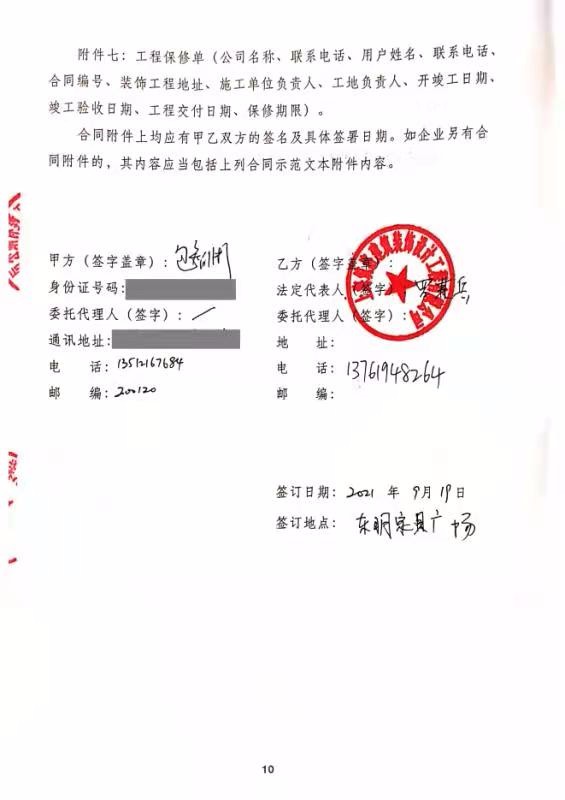 附件七：工程保修单（公司名称、联系电话、用户姓名、联系电话、
合同编号、装饰工程地址、施工单位负责人、工地负责人、开竣工日期、
竣工验收日期、工程交付日期、保修期限）。
合同附件上均应有甲乙双方的签名及具体签署日期。如企业另有合
同附件的，其内容应当包括上列合同示范文本附件内容。
甲方（签字盖章）：包
身份证号码：
委托代理人（签字）：/
通讯地址：
电 话：13512167684
邮 编：200120
乙方（签字盖章）：
建筑装饰设计工程有限公司
法定代表人（签字）：兵
委托代理人（签字）：
地 址：
电 话：13761948264
邮 编：
签订日期：2021 年 9月19日
签订地点：东明家具广场
10